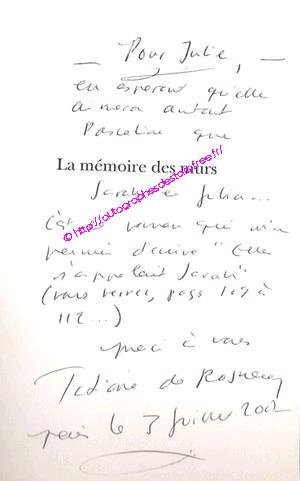 — Pour Julie, —
en espérant qu'elle
aimera autant
Pascaline que
La mémoire des murs
Sarah et Julia...
© http://autographesdestom.free.fr/
C'est ce roman qui m'a
permis d'écrire "Elle
s'appelait Sarah"
(vous verrez, page 109 à
112...)
merci à vous
Tatiana de Rosnay
Paris le 3 2012